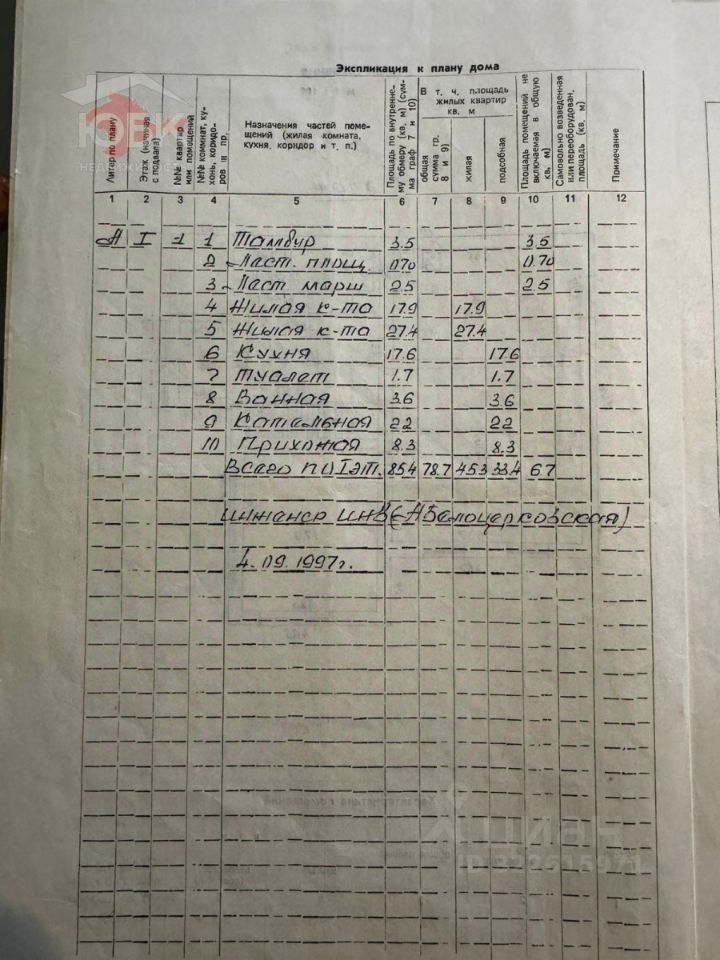 Экспликация к плану дома
Литер по плану
Этаж (начиная с подвала)
№№ квартир или помещений
№№ комнат, кухонь, коридоров и пр.
Назначения частей помещений (жилая комната, кухня, коридор и т. п.)
Площадь по внутреннему обмеру (кв. м) (сумма граф 7 и 10)
В т. ч. площадь жилых квартир кв. м
общая (сумма гр. 8 и 9)
жилая
подсобная
Площадь помещений не включаемая в общую (кв. м)
Самовольно возведенная или переоборудован. площадь (кв. м)
Примечание
1 2 3 4 5 6 7 8 9 10 11 12
А I 1 1 Тамбур 3.5 3.5
2 Лест. площ. 0.70 0.70
3 Лест марш 2.5 2.5
4 Жилая к-та 17.9 17.9
5 Жилая к-та 27.4 27.4
6 Кухня 17.6 17.6
7 Туалет 1.7 1.7
8 Ванная 3.6 3.6
9 Котельная 2.2 2.2
10 Прихожая 8.3 8.3
Всего по I эт. 85.4 78.7 45.3 33.4 6.7
Инженер инв (А Белоцерковская)
4. 09. 1997г.
ЦИАН